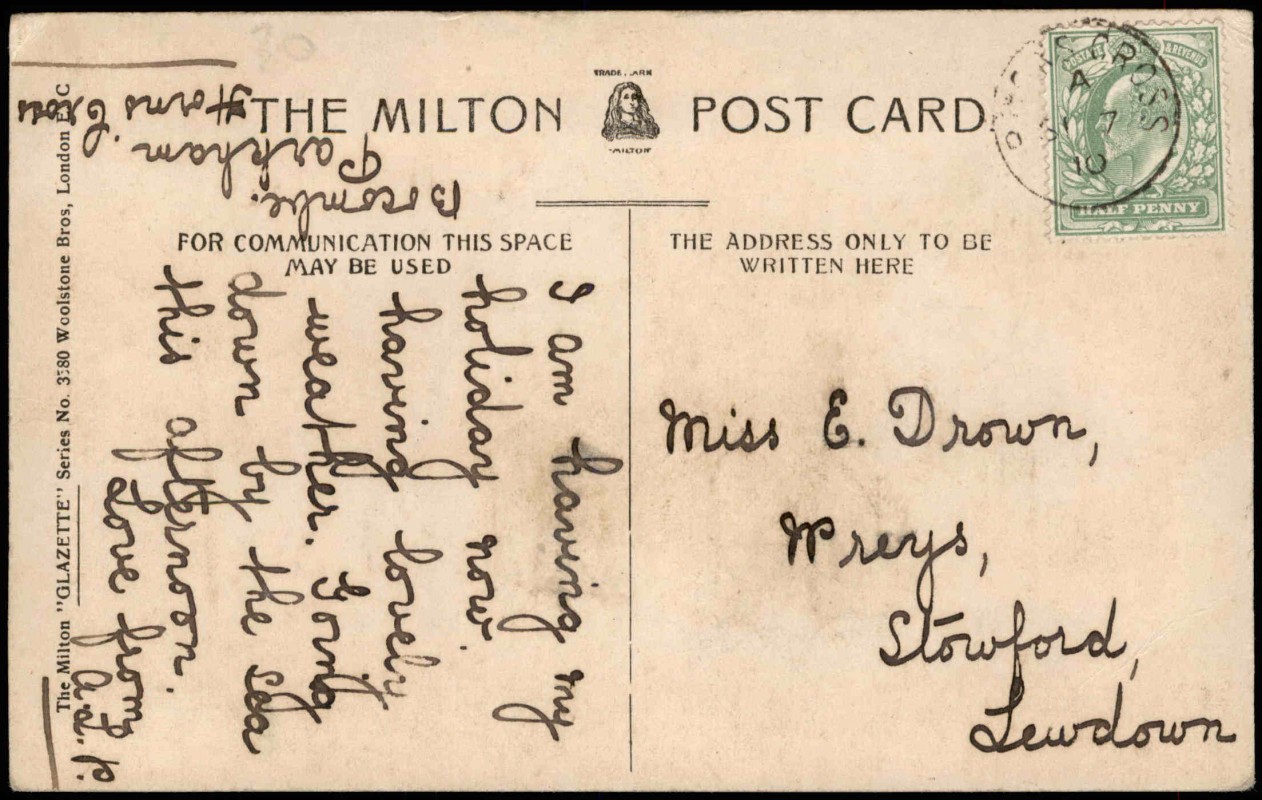 THE MILTON POST CARD
TRADE MARK
"MILTON"
FOR COMMUNICATION THIS SPACE
MAY BE USED
THE ADDRESS ONLY TO BE
WRITTEN HERE
The Milton "GLAZETTE" Series No. 3580 Woolstone Bros, London E C
POSTAGE & REVENUE
HALF PENNY
CROSS
A
7
10
Miss E. Drown,
Wreys,
Stowford,
Lewdown
Bocombe.
Parkham.
Horns Cross
I am having my
holiday now.
having lovely
weather. Going
down by the sea
this afternoon.
Love from